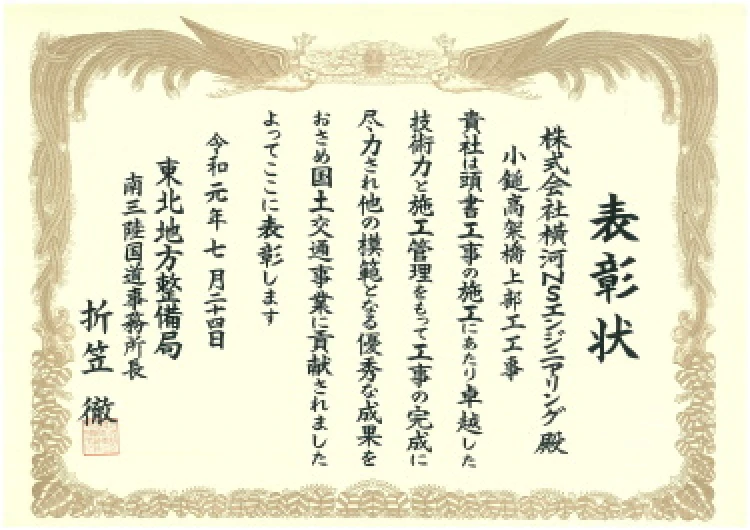 表彰状
株式会社横河NSエンジニアリング殿
小鎚高架橋上部工工事
貴社は頭書工事の施工にあたり卓越した
技術力と施工管理をもって工事の完成に
尽力され他の模範となる優秀な成果を
おさめ国土交通事業に貢献されました
よってここに表彰します
令和元年七月二十四日
東北地方整備局
南三陸国道事務所長
折笠徹